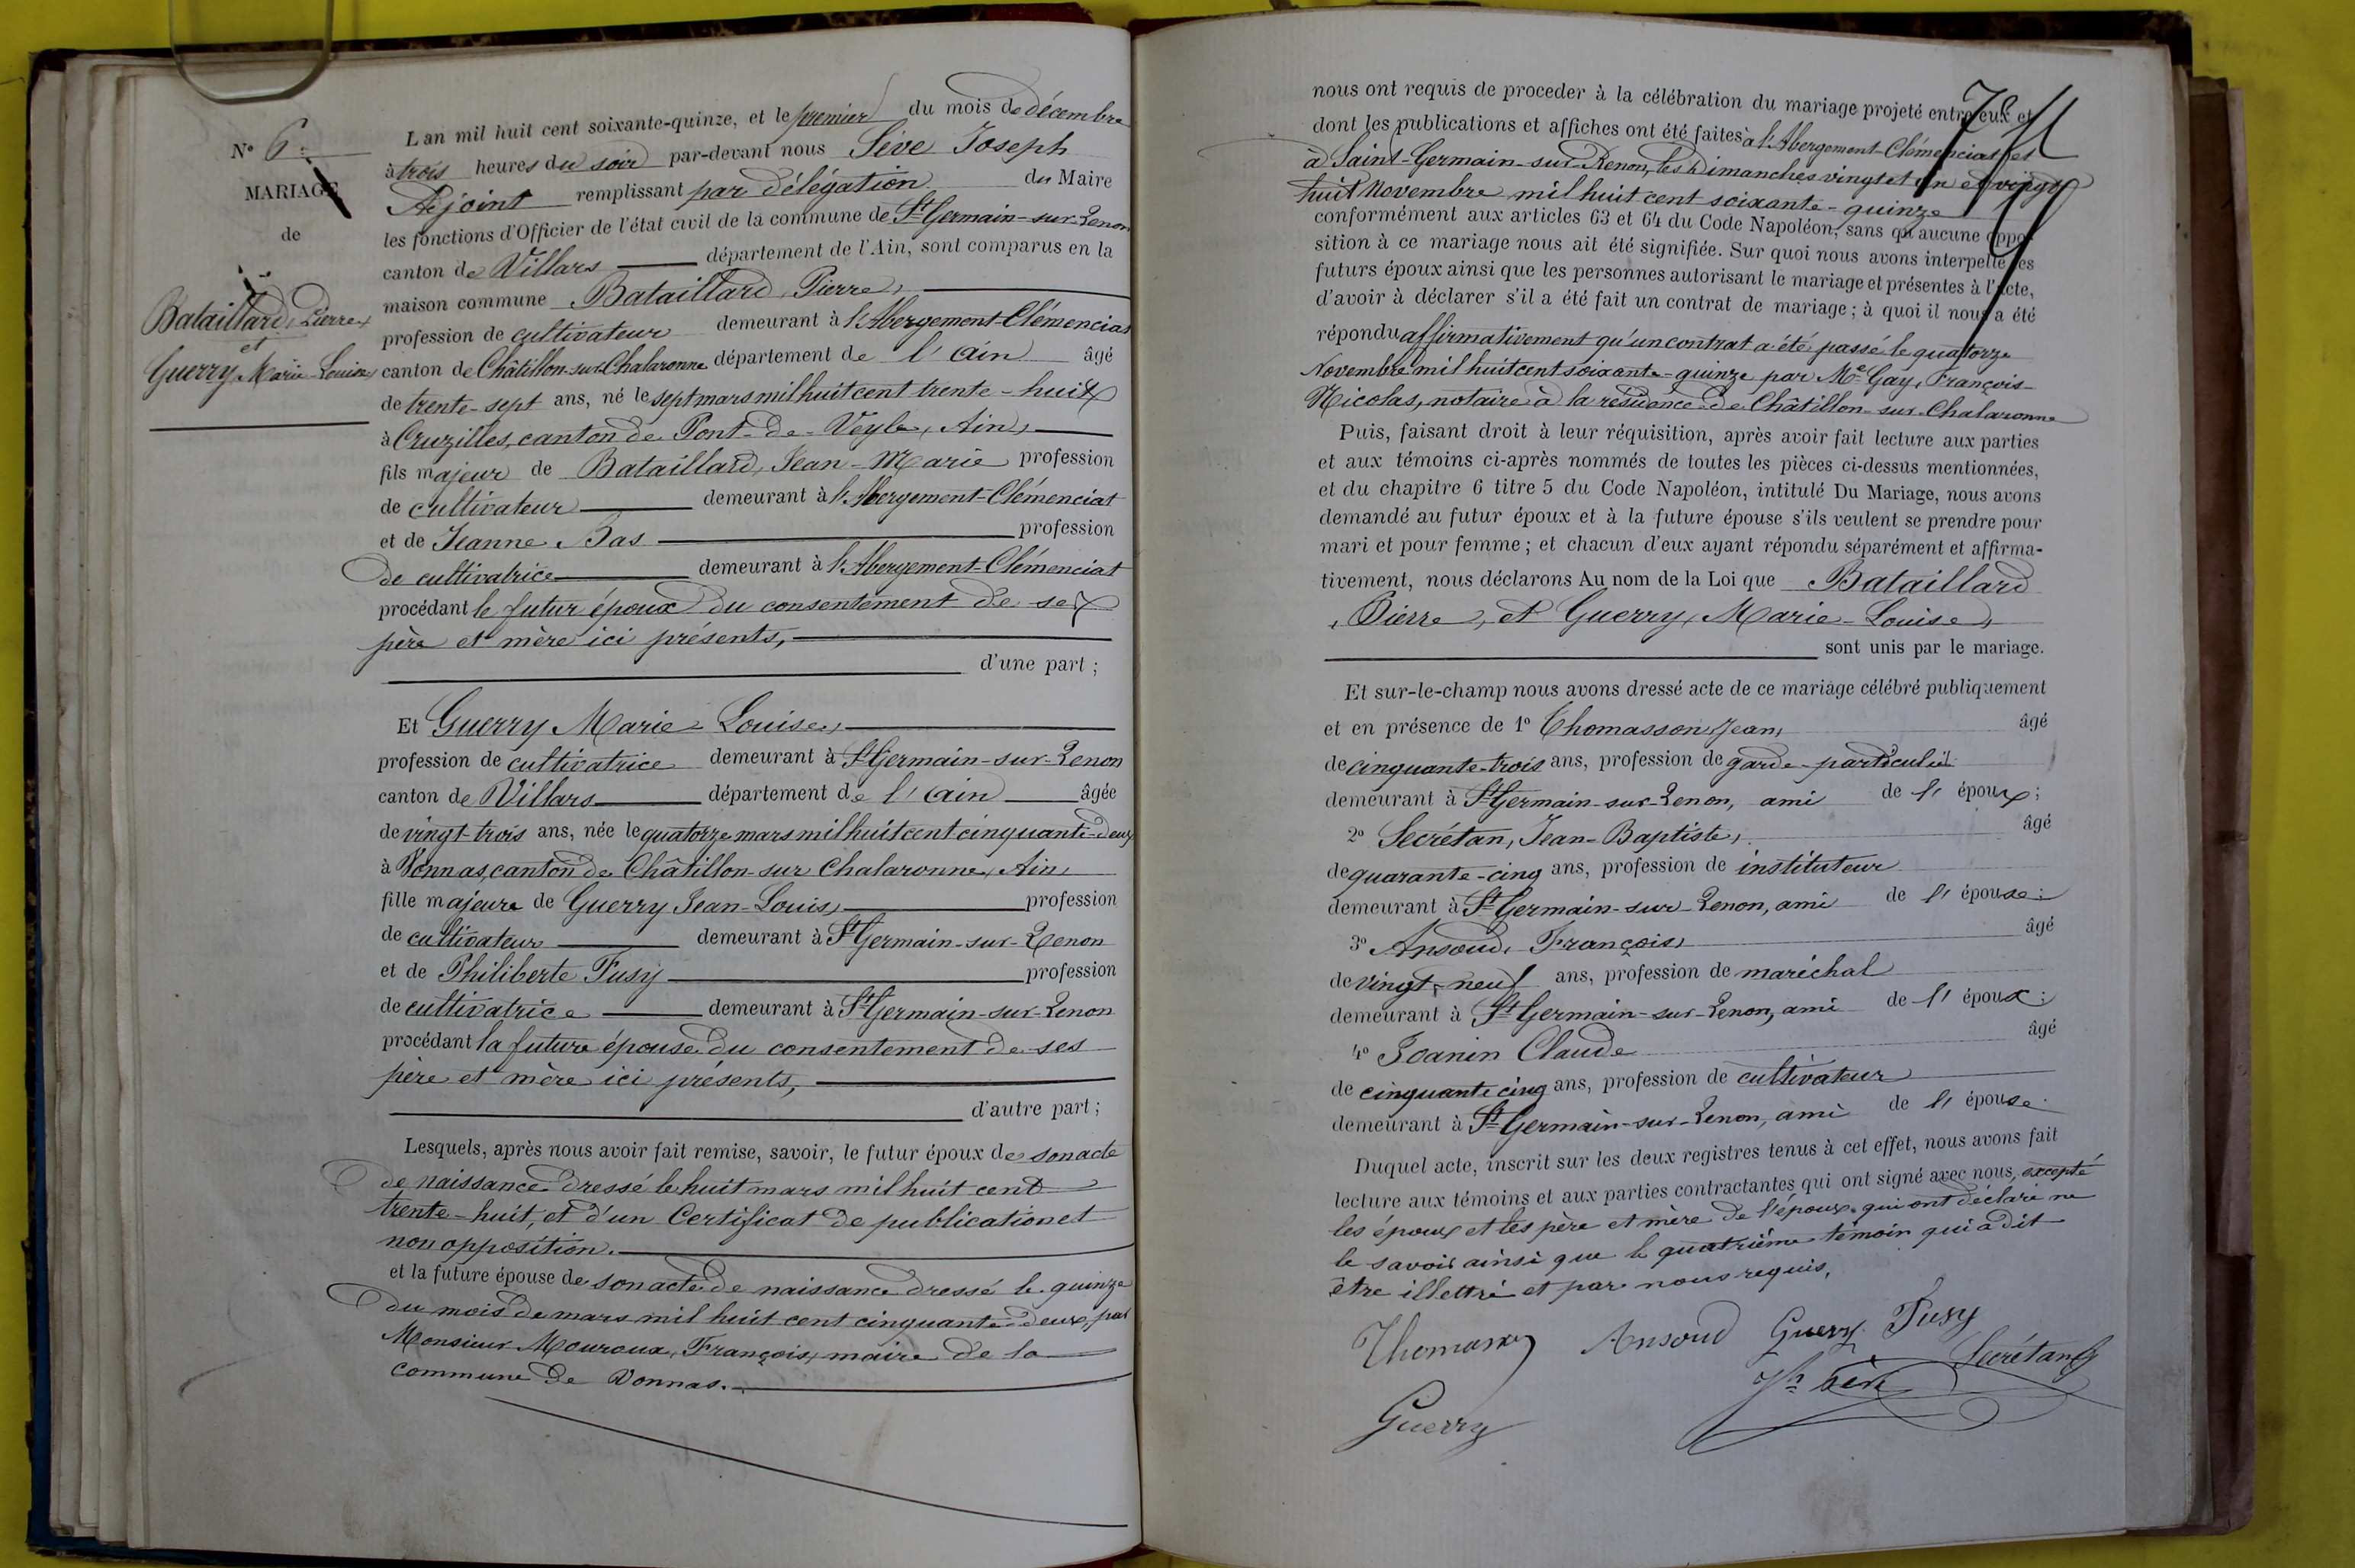 N° 6.
MARIAGE
de
Bataillard, Pierre,
et
Guerry, Marie Louise,
L'an mil huit cent soixante-quinze, et le premier du mois de décembre
à trois heures du soir par-devant nous Sève Joseph
Adjoint remplissant par délégation du Maire
les fonctions d'Officier de l'état civil de la commune de St Germain-sur-Renon
canton de Villars département de l'Ain, sont comparus en la
maison commune Bataillard, Pierre,
profession de cultivateur demeurant à l'Abergement-Clémenciat
canton de Châtillon-sur-Chalaronne département de l'Ain âgé
de trente-sept ans, né le sept mars mil huit cent trente-huit
à Cruzilles, canton de Pont-de-Veyle, Ain,
fils majeur de Bataillard, Jean-Marie profession
de cultivateur demeurant à l'Abergement-Clémenciat
et de Jeanne Bas profession
de cultivatrice demeurant à l'Abergement-Clémenciat
procédant le futur époux du consentement de ses
père et mère ici présents,
d'une part ;
Et Guerry Marie-Louise,
profession de cultivatrice demeurant à St Germain-sur-Renon
canton de Villars département de l'Ain âgée
de vingt-trois ans, née le quatorze mars mil huit cent cinquante-deux
à Vonnas, canton de Châtillon-sur Chalaronne, Ain,
fille majeure de Guerry Jean-Louis, profession
de cultivateur demeurant à St Germain-sur-Renon
et de Philiberte Fusy profession
de cultivatrice demeurant à St Germain-sur-Renon
procédant la future épouse du consentement de ses
père et mère ici présents,
d'autre part ;
Lesquels, après nous avoir fait remise, savoir, le futur époux de son acte
de naissance dressé le huit mars mil huit cent
trente-huit, et d'un Certificat de publication et
non opposition.
et la future épouse de son acte de naissance dressé le quinze
du mois de mars mil huit cent cinquante-deux, par
Monsieur Mouroux, François, maire de la
commune de Vonnas.
nous ont requis de proceder à la célébration du mariage projeté entre eux et
dont les publications et affiches ont été faites à l'Abergement-Clémenciat et
à Saint-Germain-sur-Renon, les dimanches vingt et un et vingt
huit Novembre mil huit cent soixante-quinze
conformément aux articles 63 et 64 du Code Napoléon, sans qu'aucune oppo-
sition à ce mariage nous ait été signifiée. Sur quoi nous avons interpellé les
futurs époux ainsi que les personnes autorisant le mariage et présentes à l'acte,
d'avoir à déclarer s'il a été fait un contrat de mariage ; à quoi il nous a été
répondu affirmativement qu'un contrat a été passé le quatorze
Novembre mil huit cent soixante-quinze par Me Gay, François-
Nicolas, notaire à la résidence de Châtillon-sur-Chalaronne
Puis, faisant droit à leur réquisition, après avoir fait lecture aux parties
et aux témoins ci-après nommés de toutes les pièces ci-dessus mentionnées,
et du chapitre 6 titre 5 du Code Napoléon, intitulé Du Mariage, nous avons
demandé au futur époux et à la future épouse s'ils veulent se prendre pour
mari et pour femme ; et chacun d'eux ayant répondu séparément et affirma-
tivement, nous déclarons Au nom de la Loi que Bataillard
Pierre, et Guerry, Marie-Louise,
sont unis par le mariage.
Et sur-le-champ nous avons dressé acte de ce mariage célébré publiquement
et en présence de 1° Thomasson, Jean, âgé
de cinquante-trois ans, profession de garde-particulier
demeurant à St Germain-sur-Renon, ami de l'époux ;
2° Secrétan, Jean-Baptiste, âgé
de quarante-cinq ans, profession de instituteur
demeurant à St Germain-sur-Renon, ami de l'épouse :
3° Ansoud, François, âgé
de vingt-neuf ans, profession de maréchal
demeurant à St Germain-sur-Renon, ami de l'époux :
4° Joanin Claude âgé
de cinquante cinq ans, profession de cultivateur
demeurant à St Germain-sur-Renon, ami de l'épouse.
Duquel acte, inscrit sur les deux registres tenus à cet effet, nous avons fait
lecture aux témoins et aux parties contractantes qui ont signé avec nous, excepté
les époux et les père et mère de l'époux qui ont déclaré ne
le savoir ainsi que le quatrième témoin qui a dit
être illettré et par nous requis.
Thomasson Ansoud Guerry Fusy
Jh Sève Secrétan
Guerry